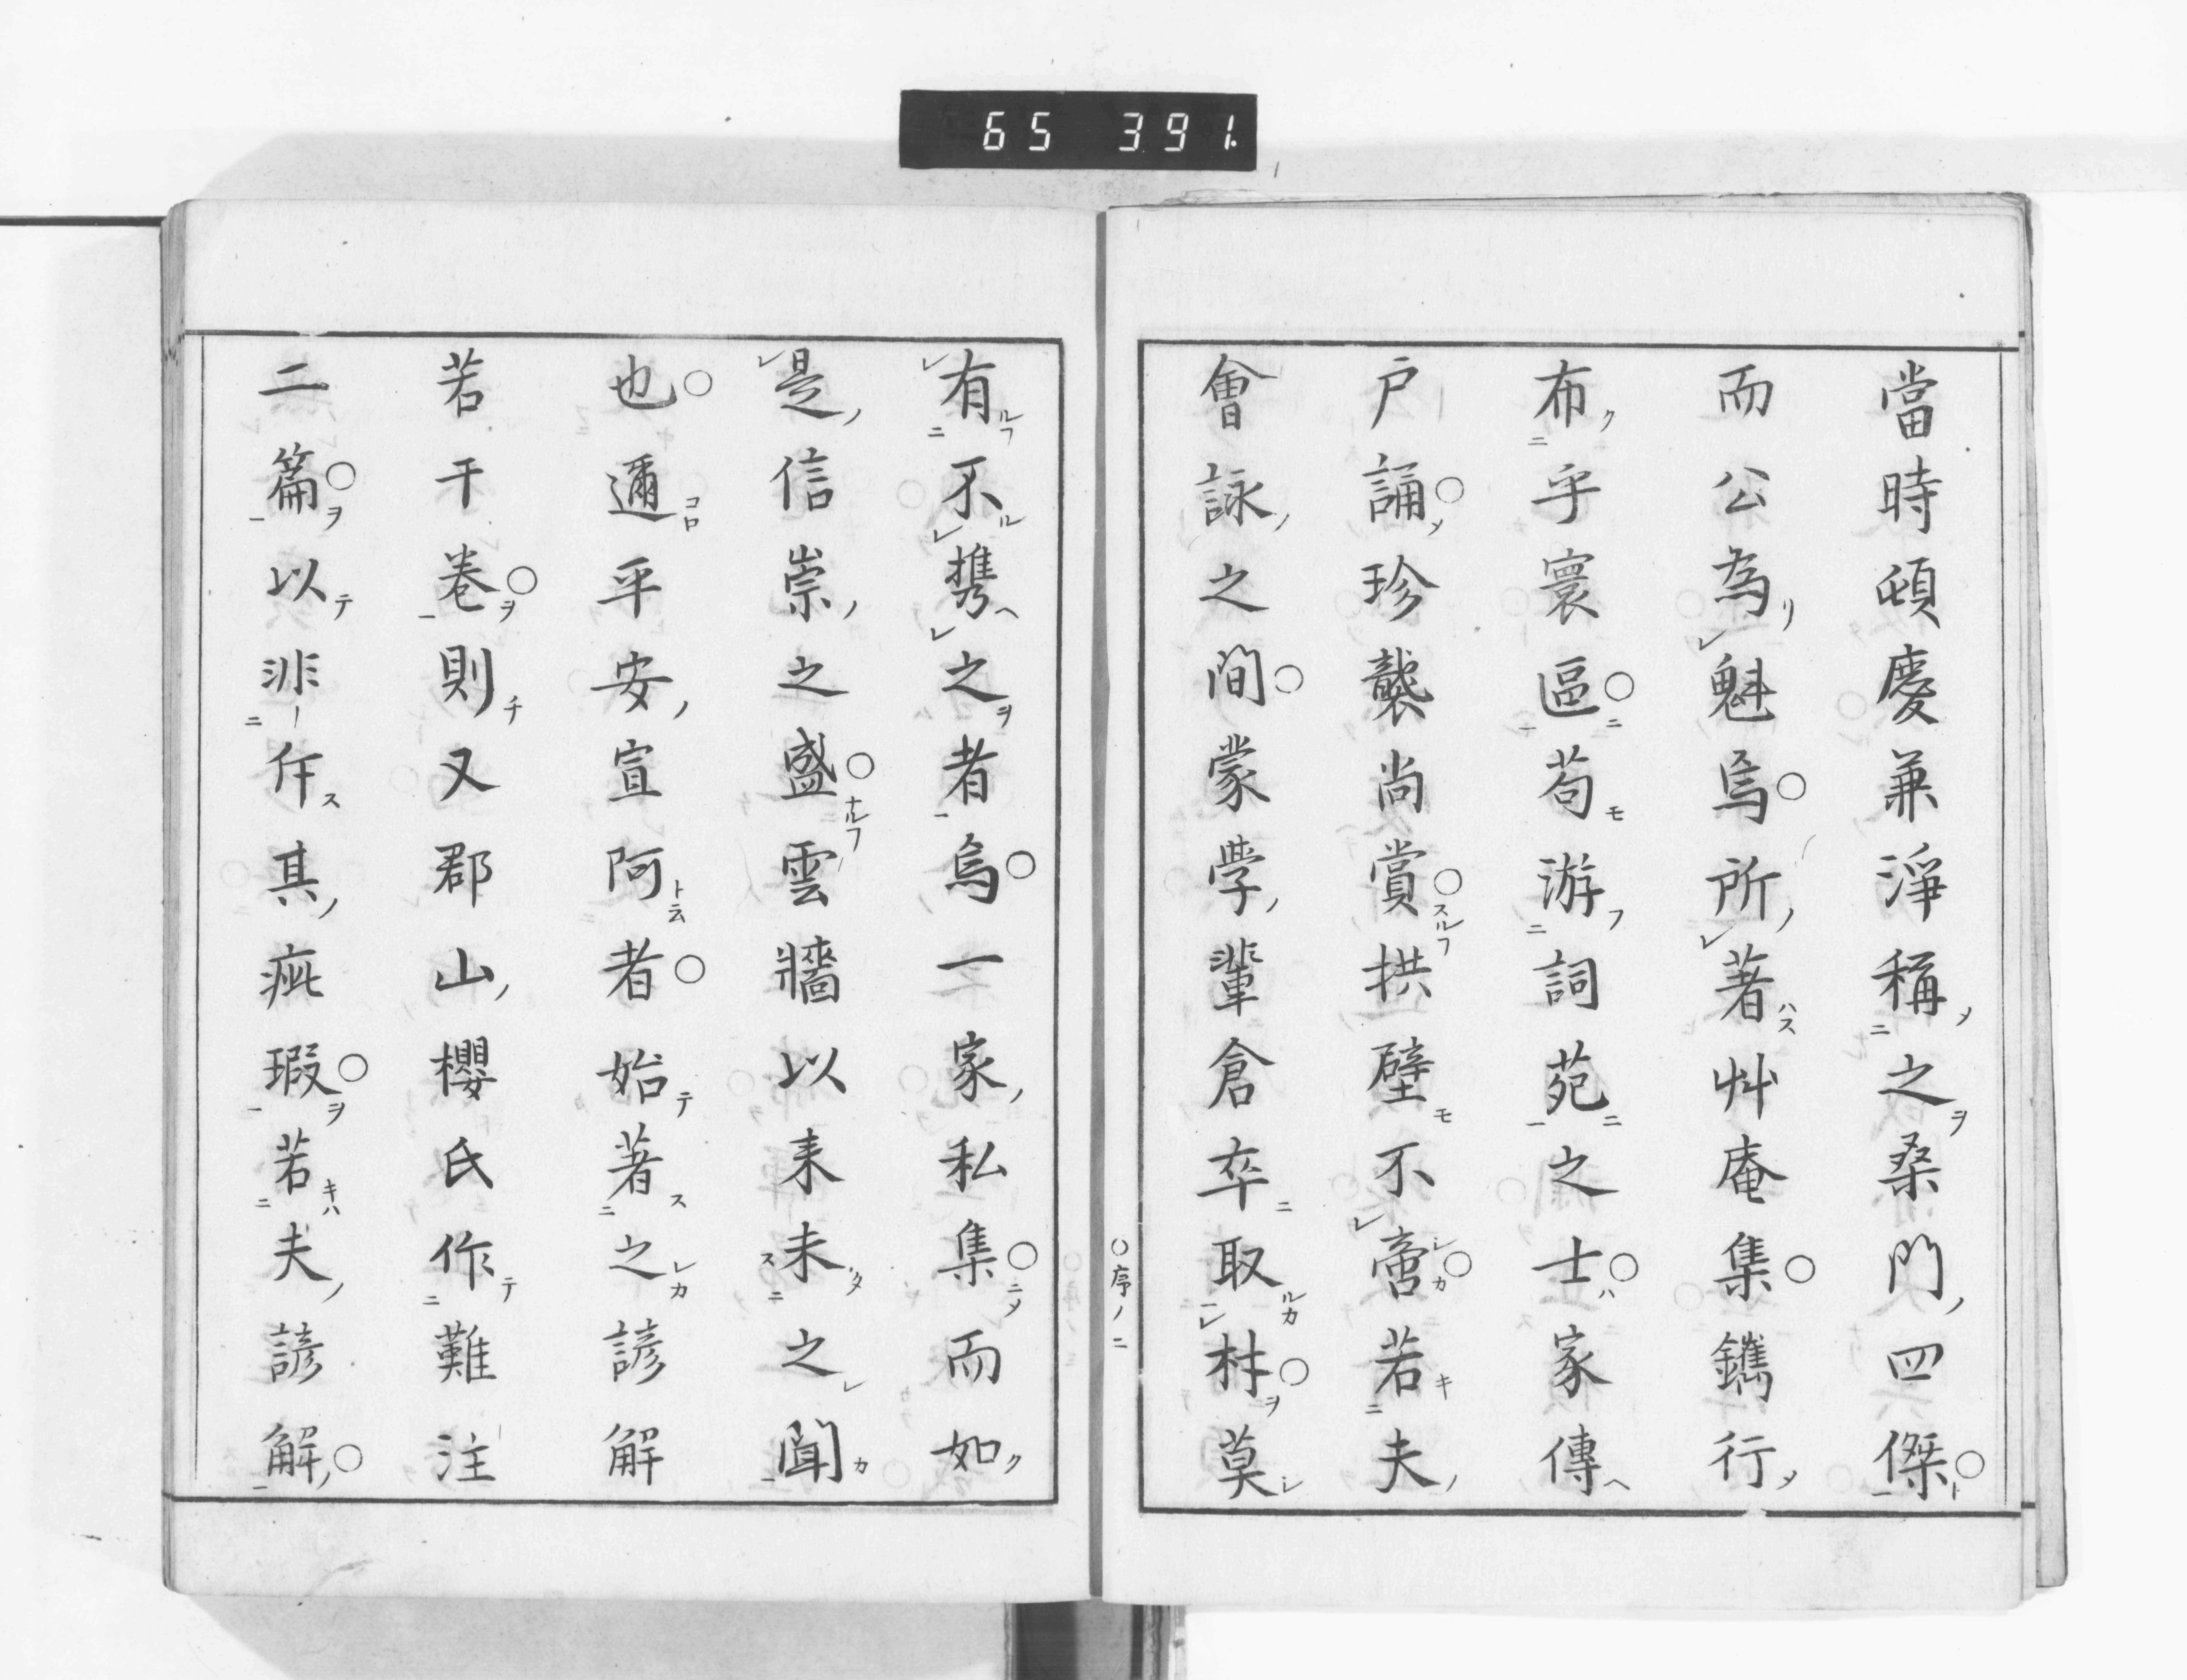 65 391.
當時頓慶兼淨稱之桑門四傑
而公為魁焉所著艸庵集鐫行
布乎寰區苟游詞苑之士家傳
戸誦珍襲尚賞拱璧不啻若夫
會詠之間蒙学輩倉卒取材莫
○序ノ二
有不携之者焉一家私集而如
是信崇之盛雲牆以来未之聞
也邇平安宣阿者始著之諺解
若干巻則又郡山櫻氏作難注
二篇以非斥其疵瑕若夫諺解